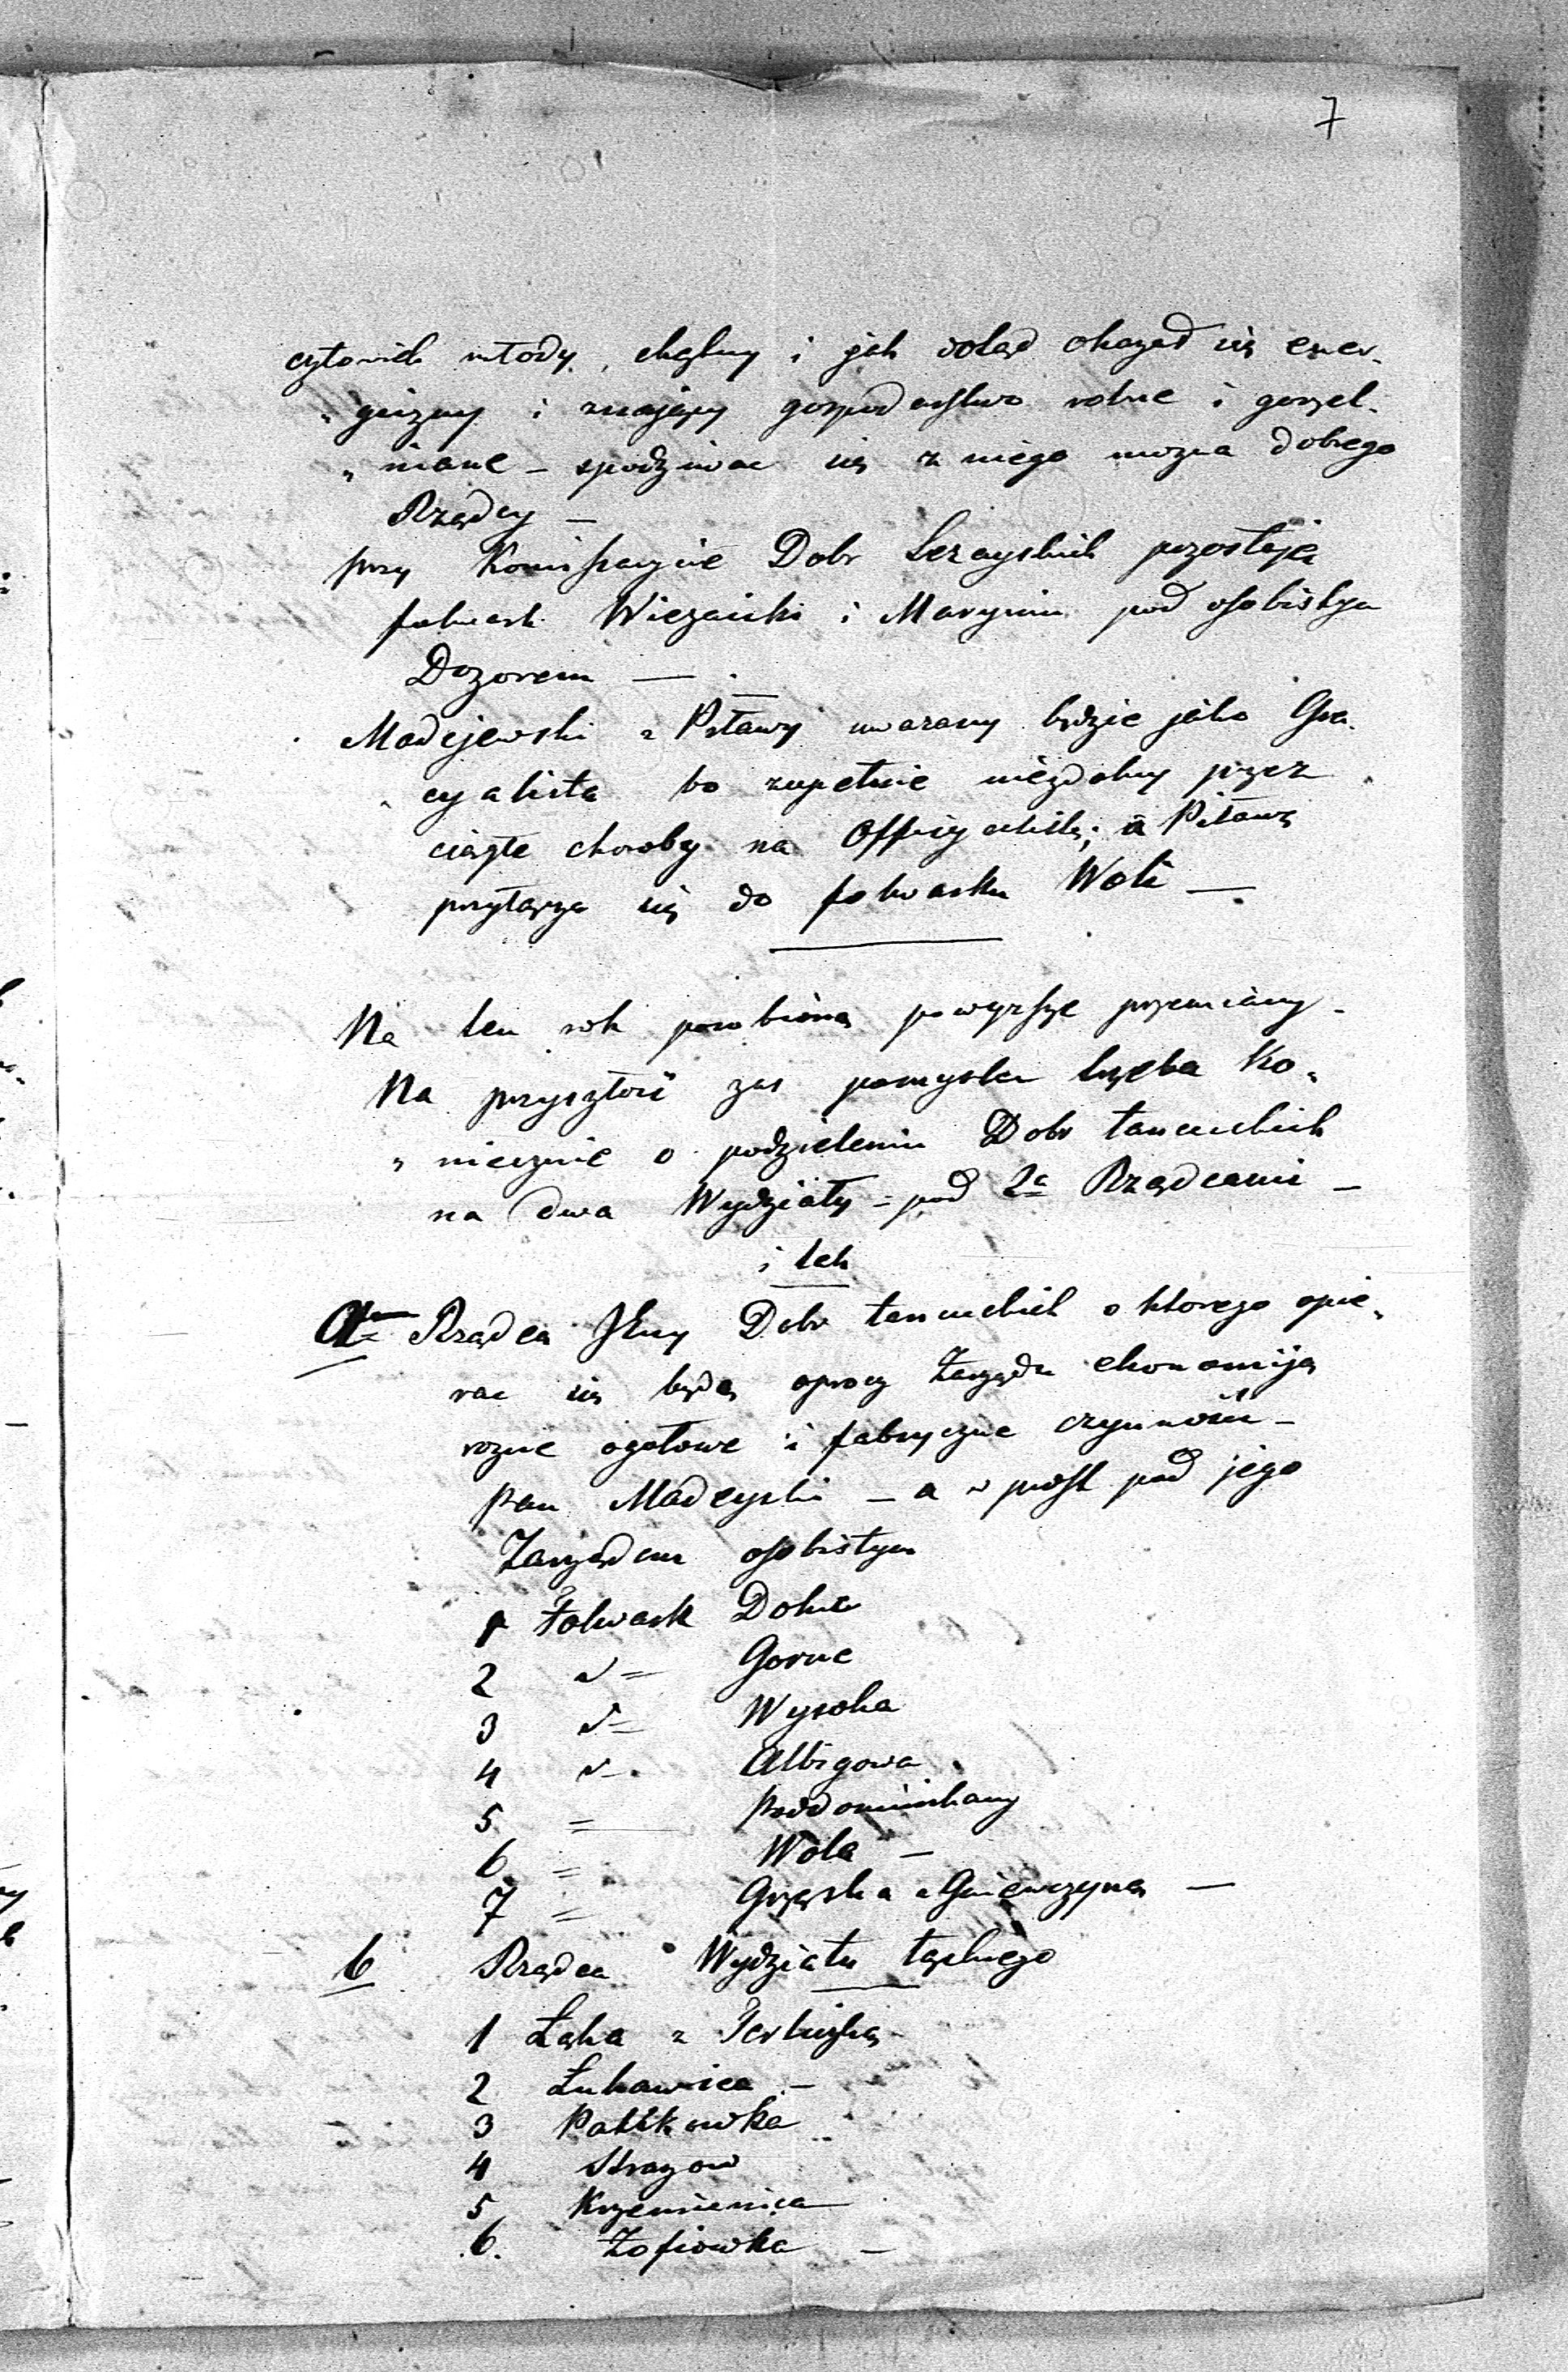 7
człowiek młody, chętny i jak dotąd okazał się ener-
„giczny i znający gospodarstwo rolne i gorzel-
„niane – spodziwac się z niego mozna dobrego
Rządcy –
przy Komissaryie Dobr Lezayskich pozostaje
folwark Wiezawki i Marynin pod osobistym
Dozorem —
Madejewski z Pstawy uwazany będzie jako Gra-
„cyalista bo zupełnie niezdolny przez
ciągłe choroby na Officyalistę; a Pstawę
przyłącza się do folwarku Woli —
Na ten rok porobioną powyzsze przemiany -
Na przyszłość zas pomyslec trzeba Ko-
„niecznie o podzieleniu Dobr łancuckich
na dwa Wydziały = pod 2a Rządcami –
i tak
a Rządca Dobr łancuckich o ktorego opie-
rac się będą oprocz Zarządu ekonomiją
rozne ogołowe i fabryczne czynności –
Pan Madeyski – a w prost pod jego
Zarządem osobistym
1 Folwark Dolne
2 " = Gorne
3 " = Wysoka
4 " - Albigowa
5 = Poddominikany
6 = Wola –
7 = Grzęska z Gniewczyną —
b Rządca Wydziału łąckiego
1 Łąka z Terliczką
2 Łukawica –
3 Palikowka
4 Strazow
5 Krzemienica
6. Zofiowka –